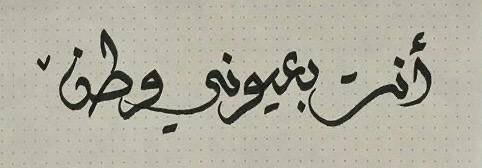 أنت بعيوني وطن